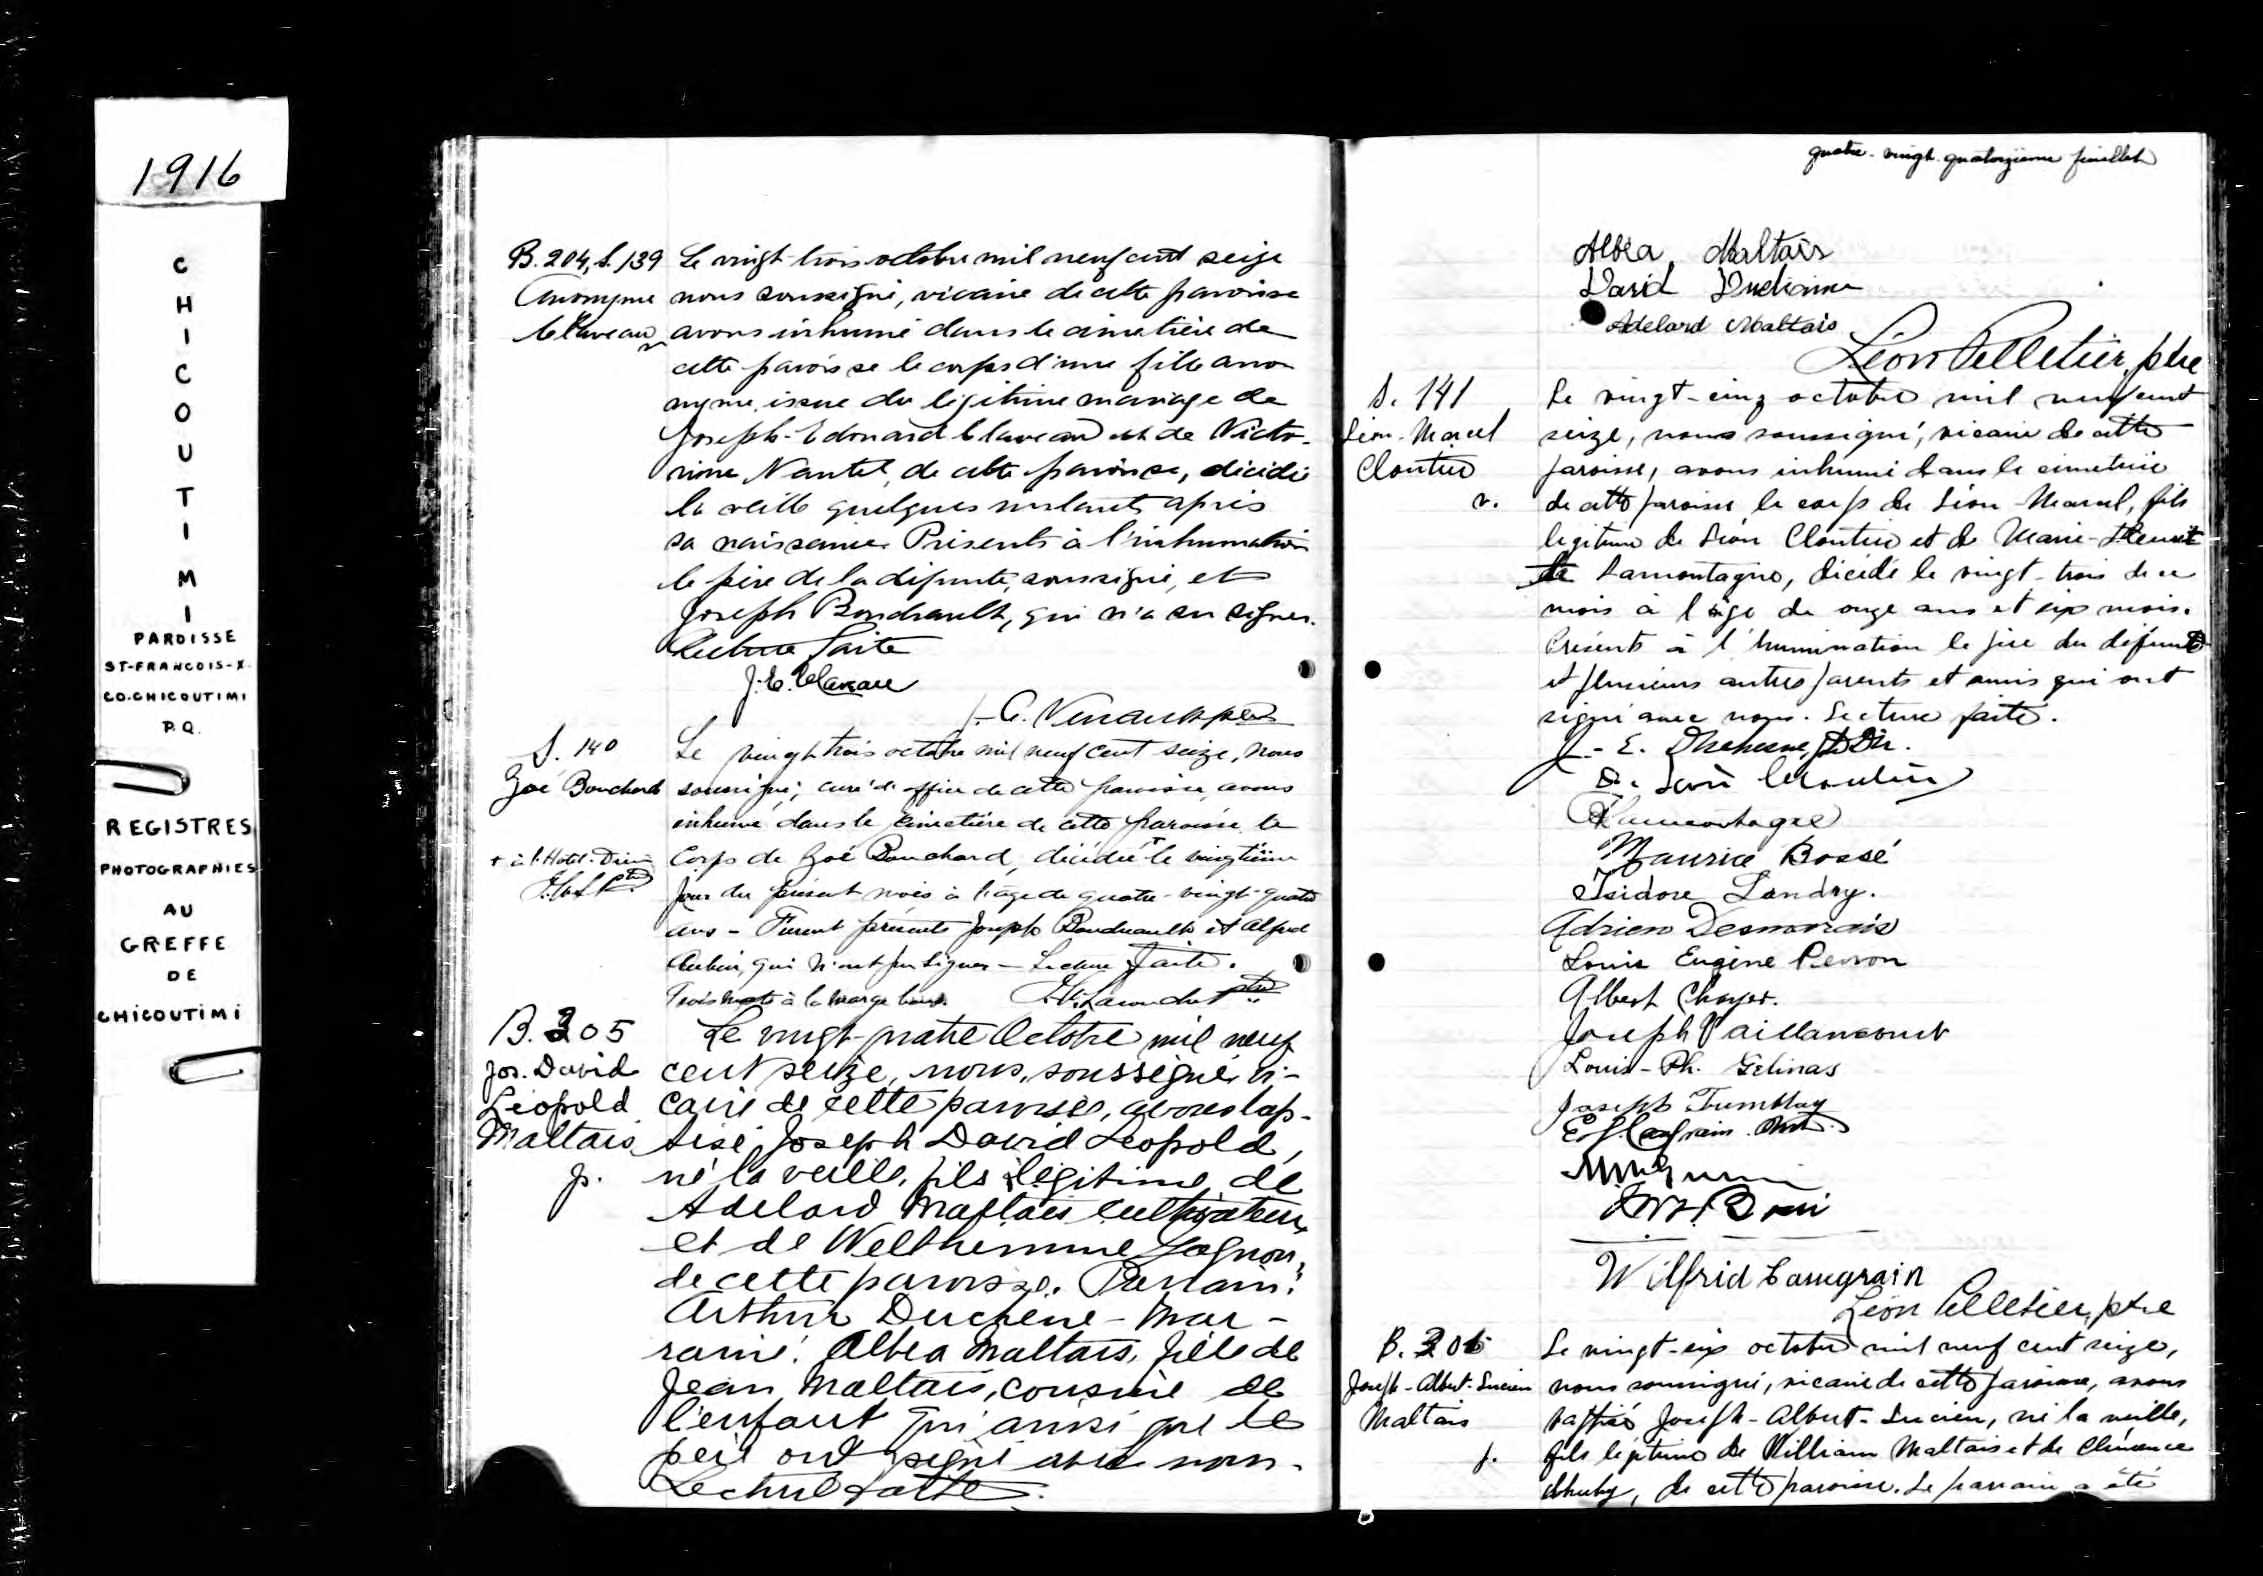 1916
C
H
I
C
O
U
T
I
M
I
PAROISSE
ST-FRANCOIS-X.
CO. CHICOUTIMI
P.Q.
REGISTRES
PHOTOGRAPHIES
AU
GREFFE
DE
CHICOUTIMI
B. 204, S. 139
Anonyme
Claveau
Le vingt-trois octobre mil neuf cent seize
nous soussigné, vicaire de cette paroisse
avons inhumé dans le cimetière de
cette paroisse le corps d'une fille ano
nyme, issue du légitime mariage de
Joseph-Edouard Claveau et de Victo-
rine Nantel, de cette paroisse, décédée
la veille quelques instants après
sa naissance. Présents à l'inhumation
le père de la défunte, soussigné, et
Joseph Boudreault, qui n'a su signer.
Lecture faite
J. E. Claveau
S. 140
Zoé Bouchard
+ à l'Hotel-Dieu
Le vingt trois octobre mil neuf cent seize, nous
soussigné, curé d'office de cette paroisse, avons
inhumé dans le cimetière de cette paroisse le
corps de Zoé Bouchard, décédée + le vingtième
jour du présent mois à l'âge de quatre-vingt-quatre
ans - Furent présents Joseph Boudreault et Alfred
Aubin, qui n'ont pu signer - Lecture faite.
Trois mots à la marge bons.
B. 205
Jos. David
Léopold
Maltais
p.
Le vingt-quatre Octobre mil neuf
cent seize, nous, soussigné vi-
caire de cette paroisse, avons bap-
tisé Joseph David Léopold,
né la veille, fils légitime de
Adelard Maltais cultivateur
et de Welthemine Gagnon,
de cette paroisse. Parrain:
Arthur Duchene - Mar-
raine: Albea Maltais, fille de
Jean Maltais, cousine de
l'enfant qui ainsi que le
père ont signé avec nous.
Lecture faite.
quatre-vingt-quatorzième feuillet
Albéa Maltais
David Duchaine
Adelard Maltais
Léon Pelletier, ptre
S. 141
Léon-Marcel
Cloutier
v.
Le vingt-cinq octobre mil neuf cent
seize, nous soussigné, vicaire de cette
paroisse, avons inhumé dans le cimetière
de cette paroisse le corps de Léon-Marcel, fils
légitime de Léon Cloutier et de Marie-
Lamontagne, décédé le vingt-trois de ce
mois à l'âge de onze ans et six mois.
Présents à l'humination le père du défunt
et plusieurs autres parents et amis qui ont
signé avec nous. Lecture faite.
J.-E. Duchesne, ptre.
D. Léon Cloutier
Lamontagne
Maurice Bossé
Isidore Landry.
Adrien Desmarais
Louis Eugène Perron
Albert Chayer.
Joseph Vaillancourt
Louis-Ph. Gélinas
Joseph Tremblay
Wilfrid Casegrain
Léon Pelletier, ptre
B. 206
Joseph-Albert-Lucien
Maltais
p.
Le vingt-six octobre mil neuf cent seize,
nous soussigné, vicaire de cette paroisse, avons
baptisé Joseph-Albert-Lucien, né la veille,
fils légitime de William Maltais et de Clémence
de cette paroisse. Le parrain a été